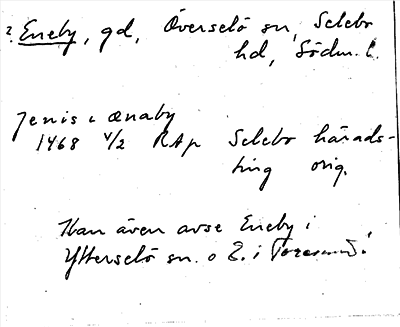 2. Eneby, gd, Överselö sn, Selebo
hd, Södm. l.
Jenis i ænaby
1468 4/2 RAp Selebo härads-
ting orig.
Kan även avse Eneby i
Ytterselö sn. o E. i Toresund!